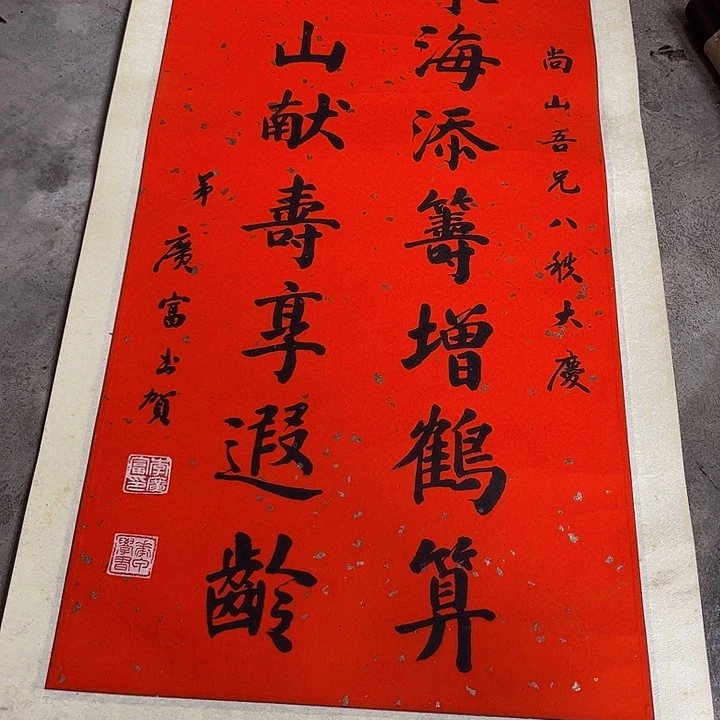 尚山吾兄八秩大慶
海添籌增鶴算
山献壽享遐齡
弟廣富書賀
李廣富印